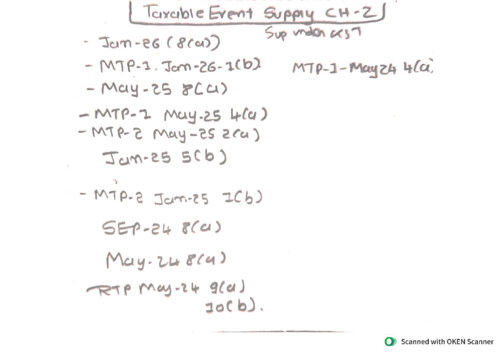 Taxable Event Supply CH-2
Sup under GST
- Jan-26 (8(a))
- MTP-1. Jan-26-1(b)
MTP-1-May24 4(a)
- May-25 8(a)
- MTP-1 May-25 4(a)
- MTP-2 May-25 2(a)
Jan-25 5(b)
- MTP-2 Jan-25 1(b)
SEP-24 8(a)
May-24 8(a)
RTP May-24 9(a)
10(b).
Scanned with OKEN Scanner